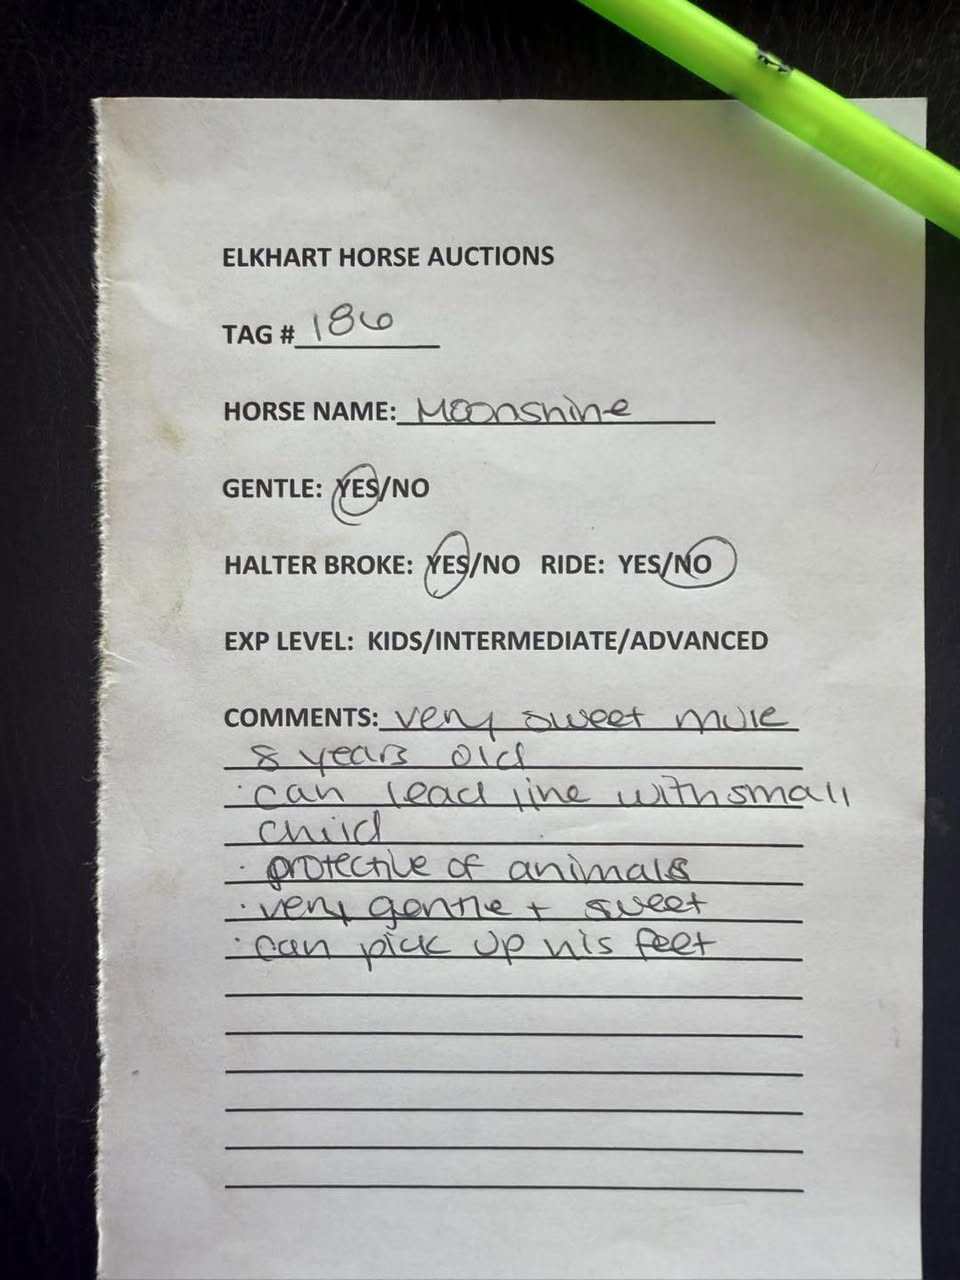 ELKHART HORSE AUCTIONS
TAG # 186
HORSE NAME: Moonshine
GENTLE: YES/NO
HALTER BROKE: YES/NO RIDE: YES/NO
EXP LEVEL: KIDS/INTERMEDIATE/ADVANCED
COMMENTS: very sweet mule
8 years old
· can lead line with small
child
· protective of animals
· very gentle + sweet
· can pick up his feet